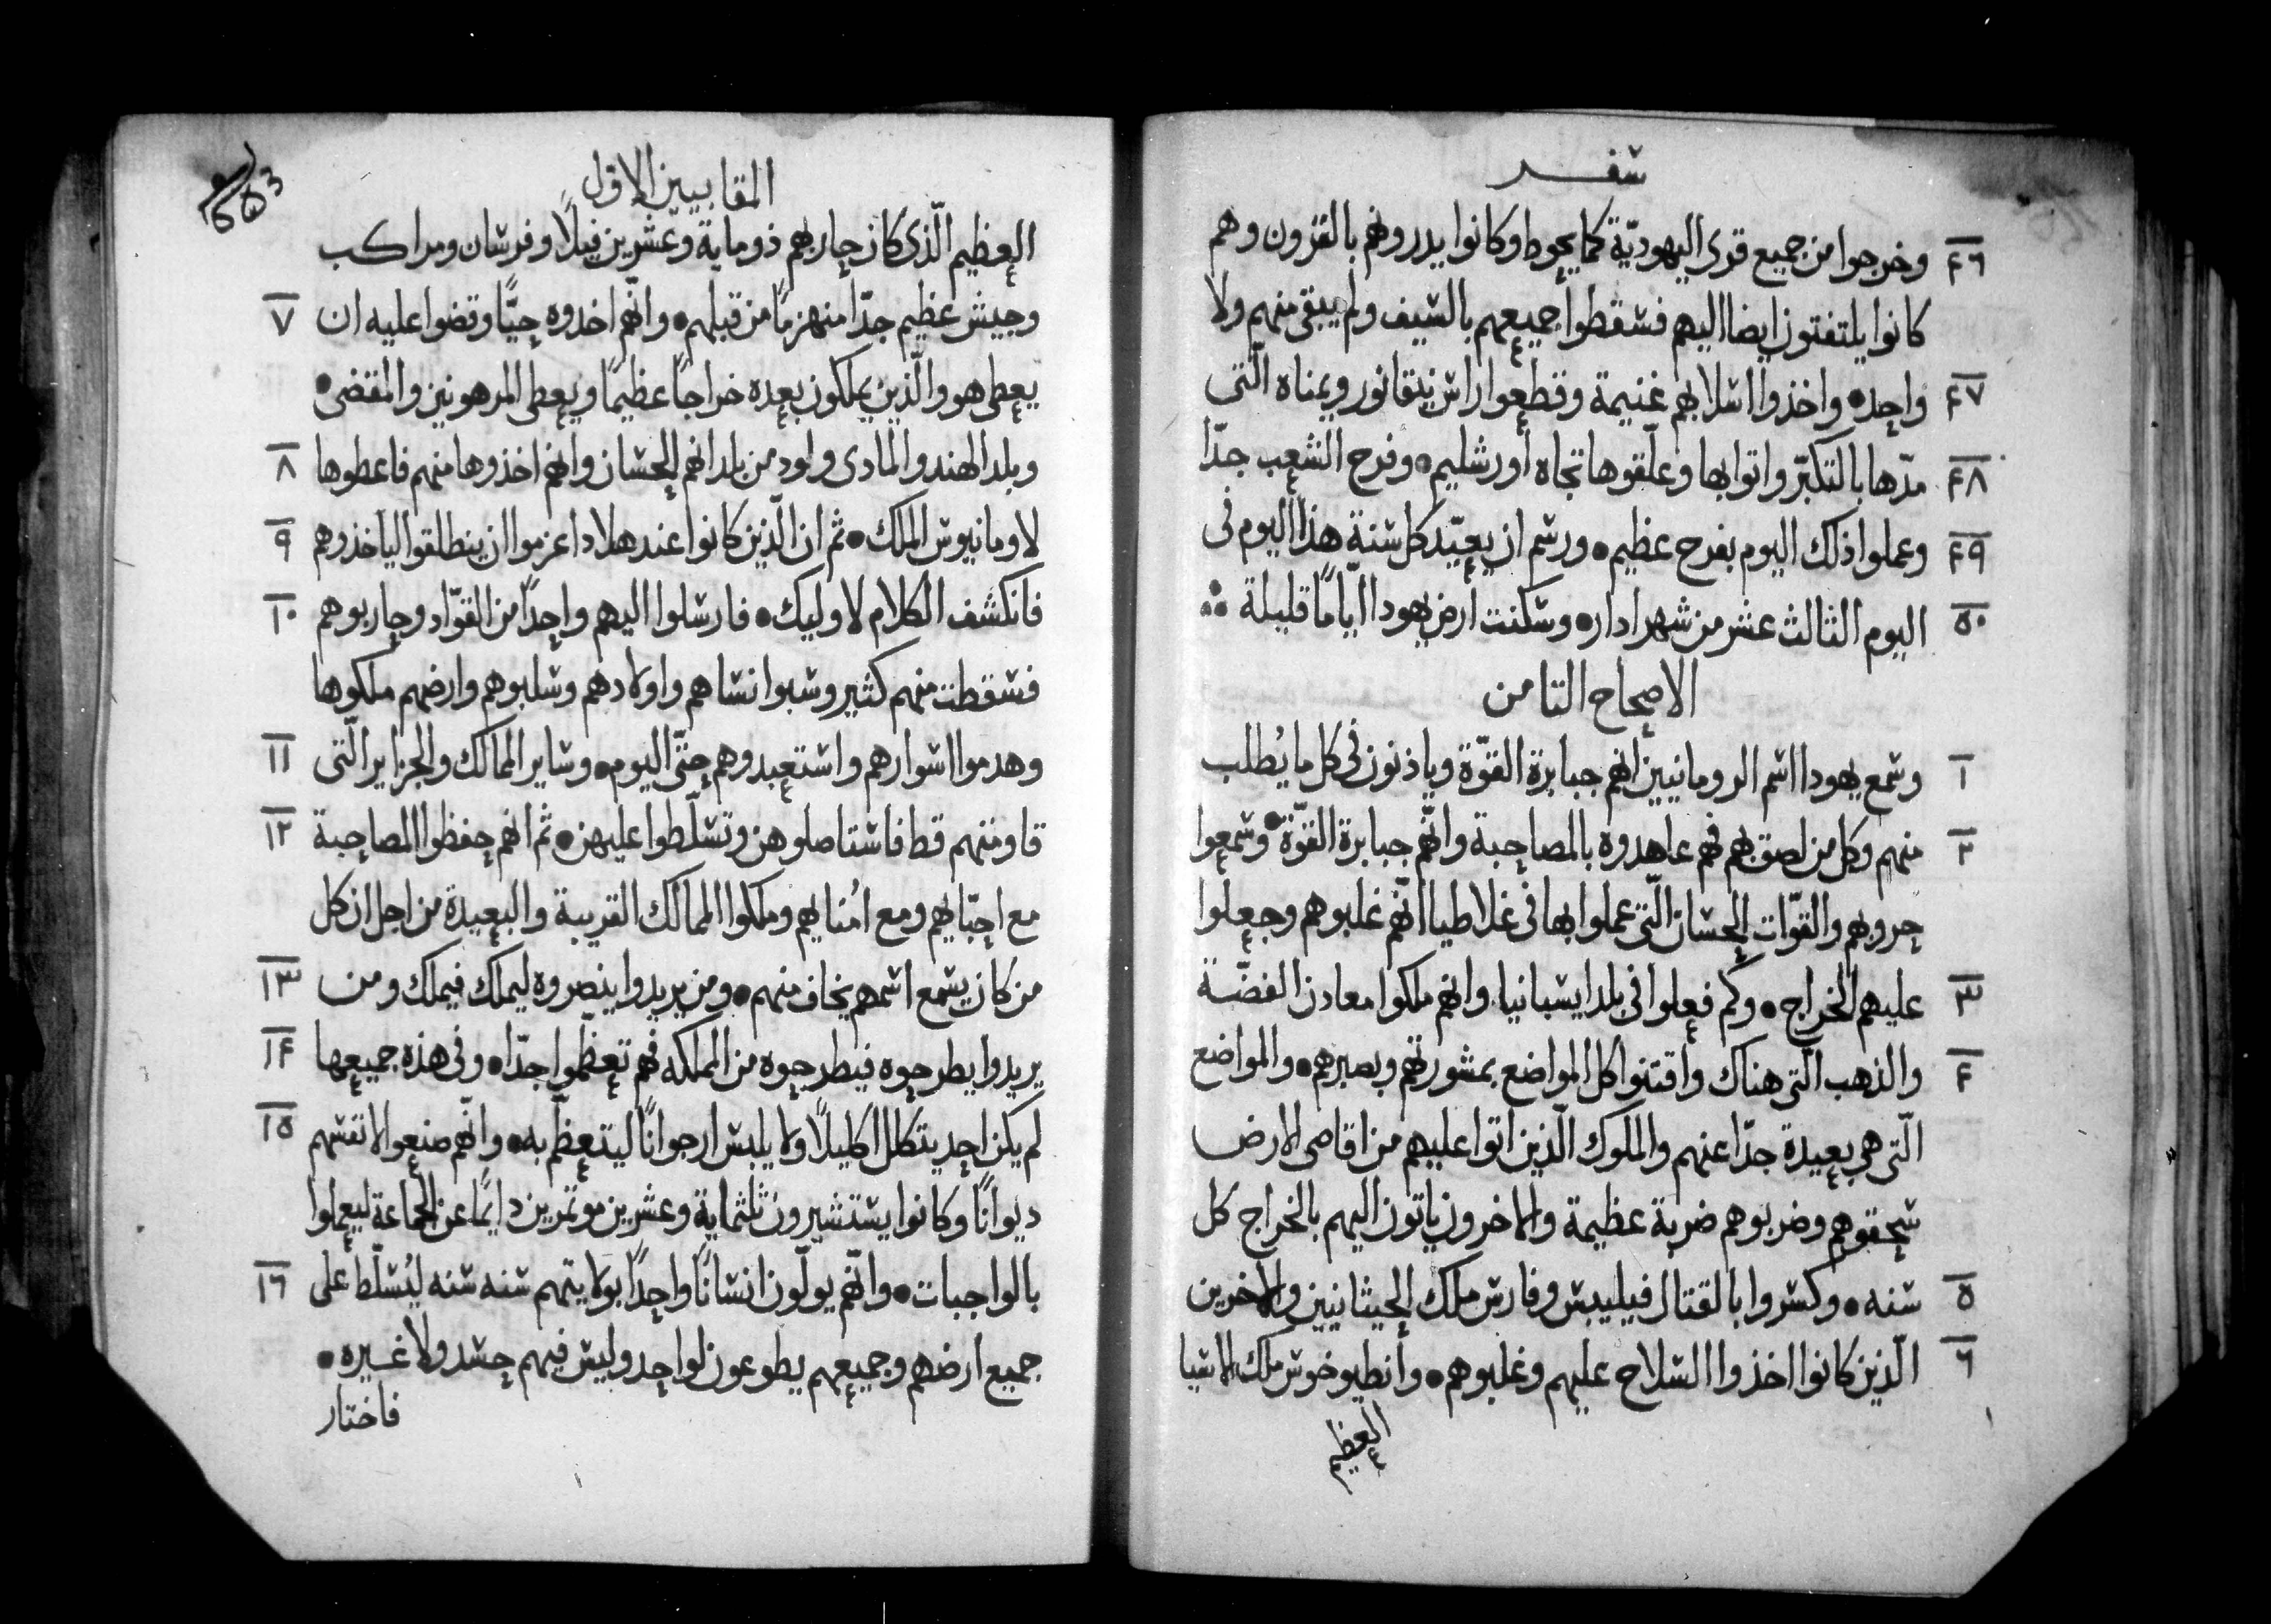 سفر
٤٦ وخرجوا من جميع قرى اليهوديّة كما يحوط وكانوا يدروهم بالقرون وهم
كانوا يلتفتون ايضا اليهم فسقطوا جميعهم بالسيف ولم يبقى منهم ولا
٤٧ واحد • واخذوا اسلابهم غنيمة وقطعوا راس نيقانور ويمناه الّتى
٤٨ مدّها بالتكبّر واتوا بها وعلّقوها تجاه أورشليم • وفرح الشعب جدّا
٤٩ وعملوا ذلك اليوم بفرح عظيم • ورسم ان يعيّد كل سنة هذا اليوم فى
٥٠ اليوم الثالث عشر من شهر ادار • وسكنت ارض يهودا ايّامًا قليلة
الاصحاح الثامن
١ وسمع يهودا اسم الرومانيين انهم جبابرة القوّة وياذنون فى كل ما يُطلب
٢ منهم وكل من لصق بهم فهم عاهدوه بالمصاحبة وانّهم جبابرة القوّة • وسمعوا
حروبهم والقوّات الحسان الّتى عملوا بها فى غلاطيا انّهم غلبوهم وجعلوا
٣ عليهم الخراج • وكم فعلوا فى بلد ايسبانيا وانهم ملكوا معادن الفضّة
٤ والذهب الّتى هناك واقتنوا كل المواضع بمشورتهم وبصبرهم • والمواضع
الّتى هى بعيدة جدّا عنهم والملوك الّذين اتوا عليهم من اقاصى الارض
سحقوهم وضربوهم ضربة عظيمة والاخرون ياتون اليهم بالخراج كل
٥ سنه • وكسروا بالقتال فيليبس وفارس ملك الحيثانيين والاخرين
٦ الّذين كانوا اخذوا السلاح عليهم وغلبوهم • وأنطيوخوس ملك اسيا
العظيم
المقابيين الاول
العظيم الّذى كان حاربهم ذو ماية وعشرين فيلًا وفرسان ومراكب
٧ وجيش عظيم جدّا منهزمًا من قبلهم • وانّهم اخدوه حيًّا وقضوا عليه ان
يعطى هو والّذين يملكون بعده خراجًا عظيمًا ويعطى المرهونين والمقضى •
٨ وبلد الهند والمادى ولود من بلدانهم الحسان وانهم اخذوها منهم فاعطوها
٩ لاومانيوس الملك • ثم ان الّذين كانوا عند هلادا عزموا ان ينطلقوا لياخذوهم
١٠ فانكشف الكلام لاوليك • فارسلوا اليهم واحدًا من القوّاد وحاربوهم
فسقطت منهم كثير وسبوا نساهم واولادهم وسلبوهم وارضهم ملكوها
١١ وهدموا اسوارهم واستعبدوهم حتّى اليوم • وساير الممالك والجزاير الّتى
١٢ قاومتهم قط فاستاصلوهن وتسلّطوا عليهن • ثم انهم حفظوا المصاحبة
مع احبّايهم ومع امُنايهم وملكوا الممالك القريبة والبعيدة من اجل ان كل
١٣ من كان يسمع اسمهم يخاف منهم • ومن يريدوا ينصروه ليملك فيملك ومن
١٤ يريدوا يطرحوه فيطرحوه من المملكه فهم تعظّموا جدّا • وفى هذه جميعها
١٥ لم يكن احد يتكلل اكليلًا ولا يلبس ارجوانًا ليتعظّم به • وانّهم صنعوا لانفسهم
ديوانًا وكانوا يستشيرون ثلثماية وعشرين موتمرين دايمًا عن الجماعة ليعملوا
١٦ بالواجبات • وانّهم يولّون انسانًا واحدًا بولايتهم سنه سنه ليُسلّط على
جميع ارضهم وجميعهم يطوعون لواحد وليس فيهم حسد ولا غيره •
فاختار